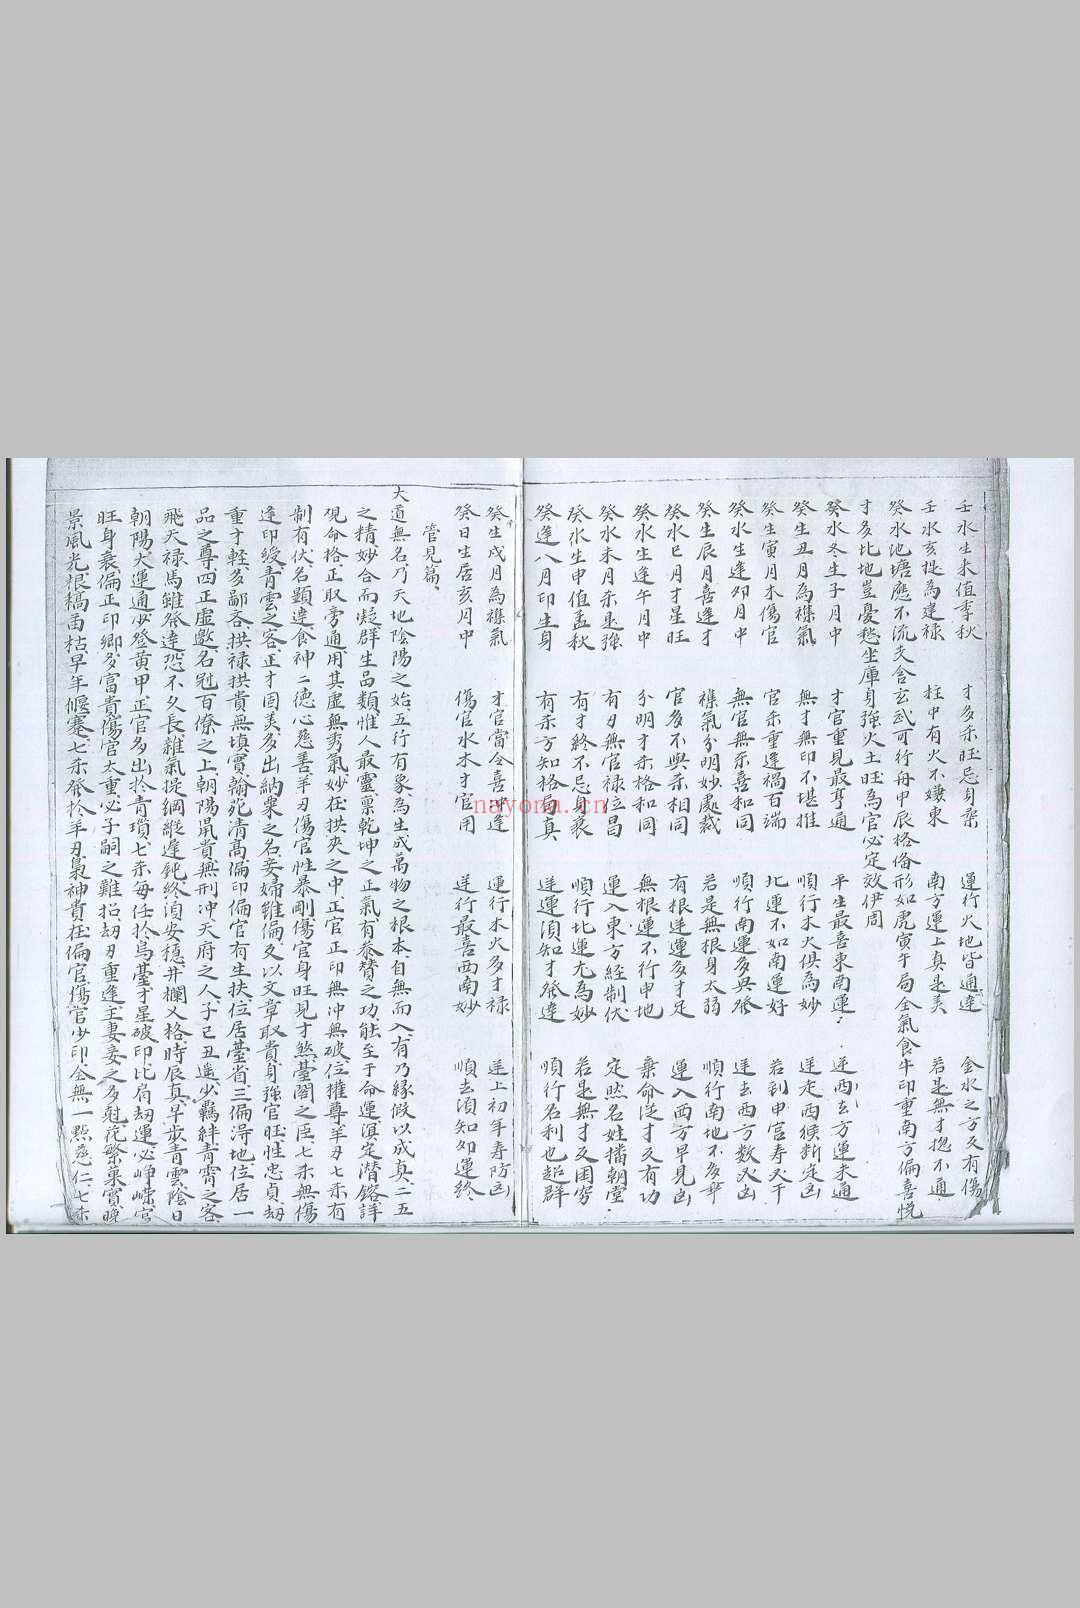 壬水生来值季秋　才多杀旺忌身柔　運行火地皆通達　金水之方又有傷
壬水亥提為建禄　柱中有火不嫌東　南方運上真是美　若是無才揔不通
癸水池塘應不流支含玄武可行舟甲辰格俻形如虎寅午局全氣食牛印重南方偏喜悦
才多北地豈憂愁坐庫身強火土旺為官必定效伊周
癸水冬生子月中　才官重見最亨通　平生最喜東南運　逆西玄方運未通
癸生丑月為襍氣　無才無印不堪推　順行木火俱為妙　逆走西猴断定凶
癸生寅月木傷官　官杀重逢禍百端　北運不如南運好　若到申宫寿又干
癸水生逢夘月中　無官無杀喜和同　順行南運多興發　逆去西方数又凶
癸生辰月喜逢才　襍氣分明妙處裁　若是無根身太弱　順行南地不多華
癸水巳月才星旺　官多不與杀相同　有根逆運多才足　運入西方早見凶
癸水生逢午月中　分明才杀格和同　無根運不行申地　棄命從才又有功
癸水未月杀星強　有刃無官禄立昌　運入東方経制伏　定然名姓播朝堂
癸水生申值孟秋　有才終不忌身衰　順行北運尤為妙　若是無才又困窮
癸逢八月印生身　有杀方知格局真　逆運須知才發達　順行名利也超群
癸生戌月為襍氣　才官當令喜中逢　運行木火多才禄　逆上初年寿防凶
癸日生居亥月中　傷官水木才官用　逆行最喜西南妙　順去須知夘運終
管見篇
大道無名乃天地陰陽之始五行有象為生成萬物之根本自無而入有乃緣假以成真二五
之精妙合而凝群生品類惟人最靈禀乾坤之正氣有叅賛之功能至于命運淇定潜鎔詳
覌命格正取旁通用其虚無秀氣妙在拱夾之中正官正印無冲無破位權尊羊刃七杀有
制有伏名顕達食神二徳心慈善羊刃傷官性暴剛傷官身旺見才煞臺閣之臣七杀無傷
逢印綬青雲之客正才固美多出納粟之名妾婦雖偏又以文章取貴身強官旺性忠貞刼
重才軽多鄙吝拱禄拱貴無填實翰苑清髙偏印偏官有生扶位居臺省三偏淂地位居一
品之尊四正虚邀名冠百僚之上朝陽鼠貴無刑冲天府之人子巳丑遥少羈絆青霄之客
飛天禄馬雖發達恐不久長雜氣提綱縱遅鈍終須安穏井欄乂格時辰真早歩青雲陰日
朝陽大運通少登黄甲正官多出扵青瑣七杀每任扵烏臺才星破印比肩刼運必峥嶸官
旺身衰偏正印鄉多富貴傷官太重必子嗣之難招刼刃重逢主妻妾之多尅花繁菓實晩
景風光根槁苗枯早年偃蹇七杀發扵羊刃梟神貴在偏官傷官少印全無一㸃慈仁七杀